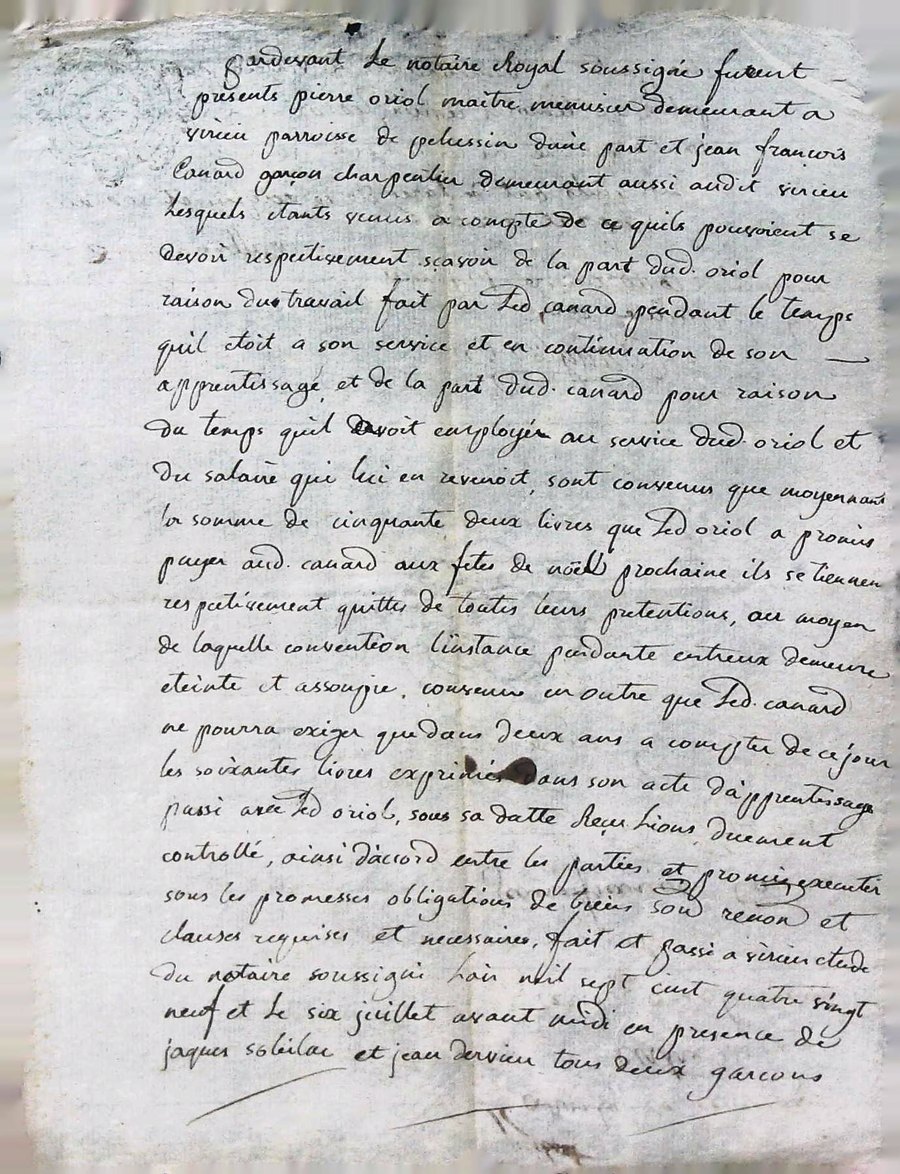 pardevant Le notaire Royal soussigné furent
presents pierre oriol maitre menusier demeurant a
virieu parroisse de pelussin d'une part et jean françois
Canard garçon charpentier demeurant aussi audit virieu
Lesquels etants venus a compte de ce quils pouvoient se
devoir respectivement scavoir de la part dud. oriol pour
raison du travail fait par Led canard pendant le temps
quil etoit a son service et en continuation de son
apprentissage et de la part dud. canard pour raison
du temps quil devoit employer au service dud. oriol et
du salaire qui lui en revenoit, sont convenus que moyennant
la somme de cinquante deux livres que Led oriol a promis
payer aud. canard aux fetes de noël prochaine ils se tiennen
respectivement quittes de toutes leurs pretentions, au moyen
de laquelle convention l'instance pendante entreux demeure
eteinte et assoupie, convenu en outre que Led. canard
ne pourra exiger que dans deux ans a compter de ce jour
les soixantes livres exprimés dans son acte d'apprentissage
passé avec Led oriol, sous sa datte Reçu Lions duement
controllé, ainsi d'accord entre les parties et promis executer
sous les promesses obligations de biens renon et
clauses requises et necessaires, fait et passé a virieu etude
du notaire soussigné L'an mil sept cent quatre vingt
neuf et Le six juillet avant midi en presence de
jaques et jean dervieu tous deux garcons